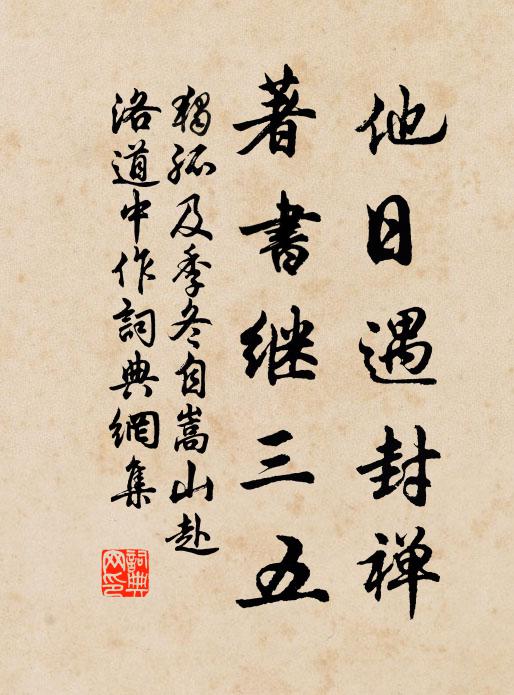 他日遇封禅
著書继三五
独孤及季冬自嵩山赴
洛道中作詞典網集
詞典网印